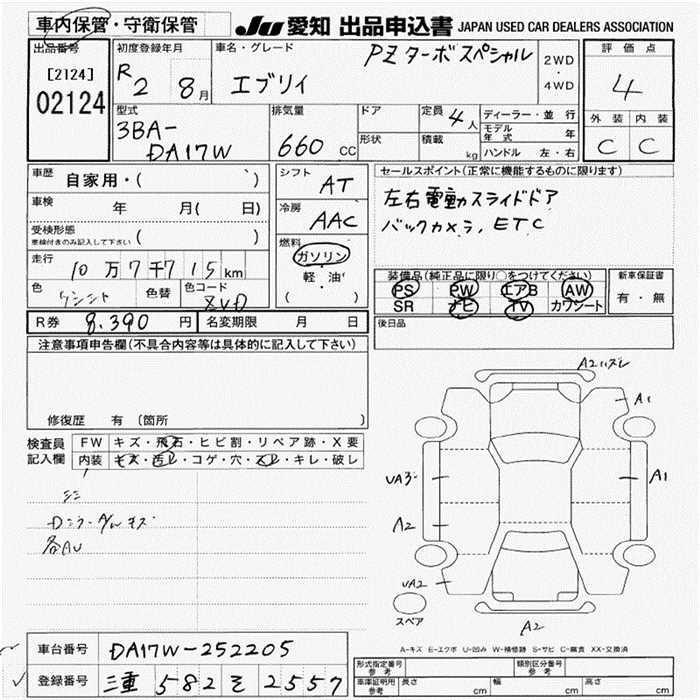 車内保管・守衛保管 JU 愛知 出品申込書 JAPAN USED CAR DEALERS ASSOCIATION
出品番号 初度登録年月 車名・グレード PZターボスペシャル 評価点
[2124] R2 8月 エブリイ 2WD・4WD 4
02124
型式 排気量 ドア 定員 4人 ディーラー・並行 外装 内装
3BA-DA17W 660cc 形状 積載 kg モデル年式 年 C C
ハンドル 左・右
車歴 自家用・( ) シフト AT セールスポイント(正常に機能するものに限ります)
車検 年 月( 日) 冷房 AAC 左右電動スライドドア
受検形態 ( ) バックカメラ, ETC
車検付きのみ記入して下さい
走行 10万7千715km 燃料 ガソリン 装備品(純正品に限り○をつけてください) 新車保証書
色 色替 色コード 軽・油 PS PW エアB AW 有・無
( ) SR ナビ TV カワシート
R券 8.390円 名変期限 月 日 後日品
注意事項申告欄(不具合内容等は具体的に記入して下さい)
修復歴 有 (箇所 )
検査員記入欄 FW キズ・飛石・ヒビ割・リペア跡・X要
内装 キズ・汚レ・コゲ・穴・スレ・キレ・破レ
シミ
Dミラー A/w キズ
各AU
A2ハズレ
A1
UA3
A1
A2
UA2
スペア
A2
A-キズ E-エクボ U-凹み W-補修跡 S-サビ C-腐食 XX-交換済
車台番号 DA17W-252205 形式指定番号 参考 類別区分番号 参考
登録番号 三重 582 そ 2557 車庫証明用 参考 長さ cm 幅 cm 高さ cm